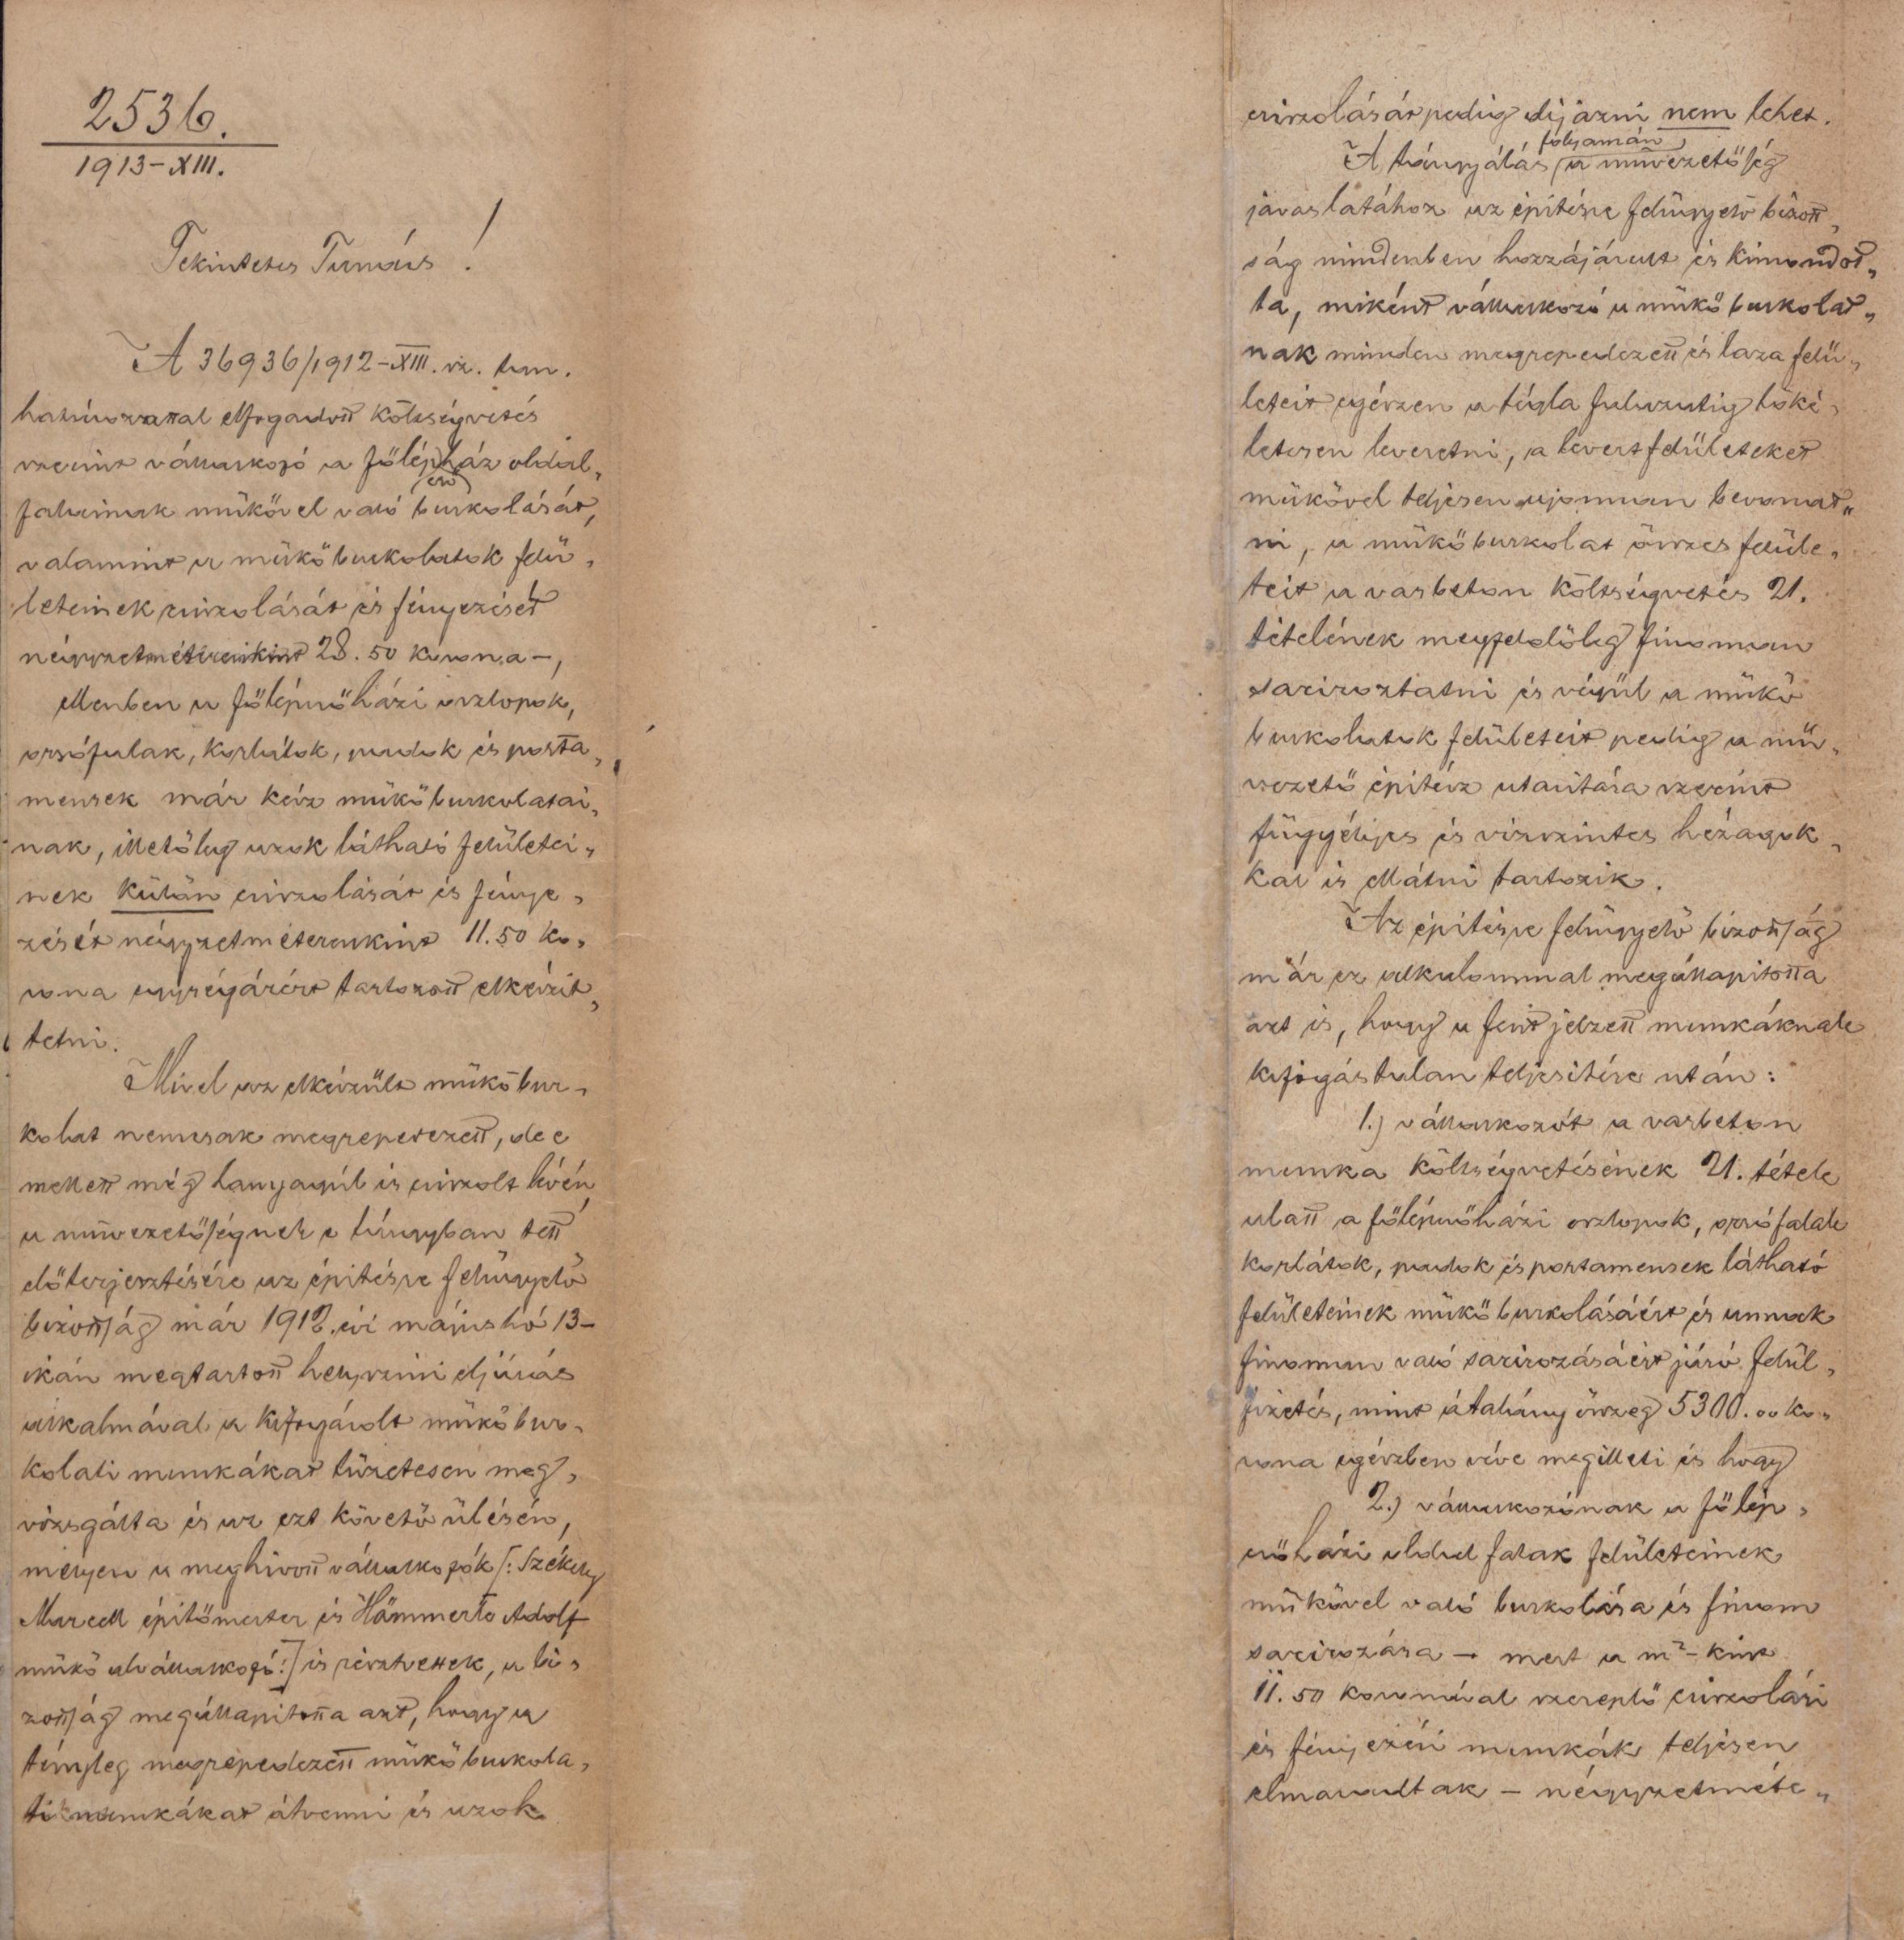 2536.
1913-XIII.
Tekintetes Tanács!
A 36936/1912-XIII. sz. tan.
határozattal elfogadott költségvetés
szerint vállalkozó a főlépházak oldal„
(cső)
falainak műkővel való burkolását,
valamint a műkőburkolatok felü„
leteinek csiszolását és fényezését
négyzetméterenkint 28.50 korona-,
ellenben a főlépcsőházi oszlopok,
orsófalak, korlátok, padok és posta„
mensek már kész műkőburkolatai„
nak, illetőleg azok látható felületei„
nek külön csiszolását és fénye„
zését négyzetméterenkint 11.50 ko„
rona egységárért tartozott elkészít„
tetni.
Mivel az elkészült műkőbur„
kolat nemcsak megrepedezett, de e
mellett még hanyagúl is csiszolt lévén,
a művezetőségnek e tárgyban tett
előterjesztésére az építésre felügyelő
bizottság már 1912. évi május hó 13-
ikán megtartott helyszini eljárás
alkalmával a kifogásolt műkőbur„
kolati munkákat tüzetesen meg„
vizsgálta és az ezt követő ülésén,
melyen a meghivott vállalkozók [: Székely
Marcell építőmester és Hämmerle Adolf
műkő alvállalkozó :] is résztvettek, a bi„
zottság megállapította azt, hogy a
tényleg megrepedezett műkőburkola„
ti munkákat átvenni és azok
csiszolását pedig díjazni nem lehet.
folyamán
A tárgyalás a művezetőség
javaslatához az építésre felügyelő bizott„
ság mindenben hozzájárult és kimondot„
ta, miként vállalkozó a műkőburkolat„
nak minden megrepedezett és laza felü„
leteit egészen a tégla falazatig töké„
letesen leveretni, a levert felületeket
műkővel teljesen ujonnan bevonat„
ni, a műkőburkolat összes felüle„
teit a vasbeton költségvetés 21.
tételének megfelelőleg finoman
sariroztatni és végül a műkő
burkolatok felületeit pedig a mű„
vezető építész utasitása szerint
függélyes és vizszintes hézagok„
kal is ellátni tartozik.
Az építésre felügyelő bizottság
már ez alkalommal megállapította
azt is, hogy a fent jelzett munkáknak
kifogástalan teljesitése után:
1.) vállalkozót a vasbeton
munka költségvetésének 21. tétele
alatt a főlépcsőházi oszlopok, orsófalak
korlátok, padok és postamensek látható
felületeinek műkőburkolásáért és annak
finoman való sarirozásáért járó felül„
fizetés, mint átalány összeg 5300.00 ko„
rona egészben véve megilleti és hogy
2.) vállalkozónak a főlép„
csőházi oldal falak felületeinek
műkővel való burkolása és finom
sarirozása - mert a m²-kint
11.50 koronával szereplő csiszolási
és fényezési munkák teljesen
elmaradtak - négyzetméte„